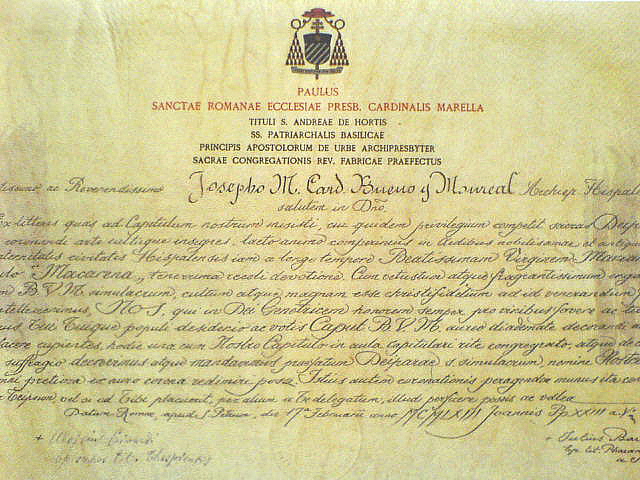 PAULUS
SANCTAE ROMANAE ECCLESIAE PRESB. CARDINALIS MARELLA
TITULI S. ANDREAE DE HORTIS
SS. PATRIARCHALIS BASILICAE
PRINCIPIS APOSTOLORUM DE URBE ARCHIPRESBYTER
SACRAE CONGREGATIONIS REV. FABRICAE PRAEFECTUS
ac Reverendissimo Josepho M. Card. Bueno y Monreal Archiep. Hispalen
salutem in Dno.
litteras quas ad Capitulum nostrum misisti, cui quidem privilegium competit sacras
coronandi arte cultuque insignes, laeto animo comperimus in aedibus nobilissimae et antiquae
civitatis Hispalensis iam a longo tempore Beatissimam Virginem Mariam
"Macarena" tenerrima recoli devotione. Cum vetustum atque fragrantissimum
B.V.M. simulacrum, cultum atque magnam esse christifidelium ad id venerandum
NOS, qui in Dei Genetricem honorem semper pro viribus fovere ac
Tuique populi desiderio ac votis Caput B.V.M. aureo diademate decorandi
cupientes, hodie una cum Nostro Capitulo in aula Capitulari rite congregato, atque de
suffragio decrevimus atque mandavimus praefatum Deiparae s. simulacrum, nomine Nostro
pretiosa ex auro corona redimiri posse. Istius autem coronationis peragendae munus
vel si id Tibi placuerit, per alium a Te delegatum, illud perficere possis ac valeas
Datum Romae, apud S. Petrum, die 17ª Februarii anno MCMLXIII Joannis Pp XXIII a. V
+
+ Julius